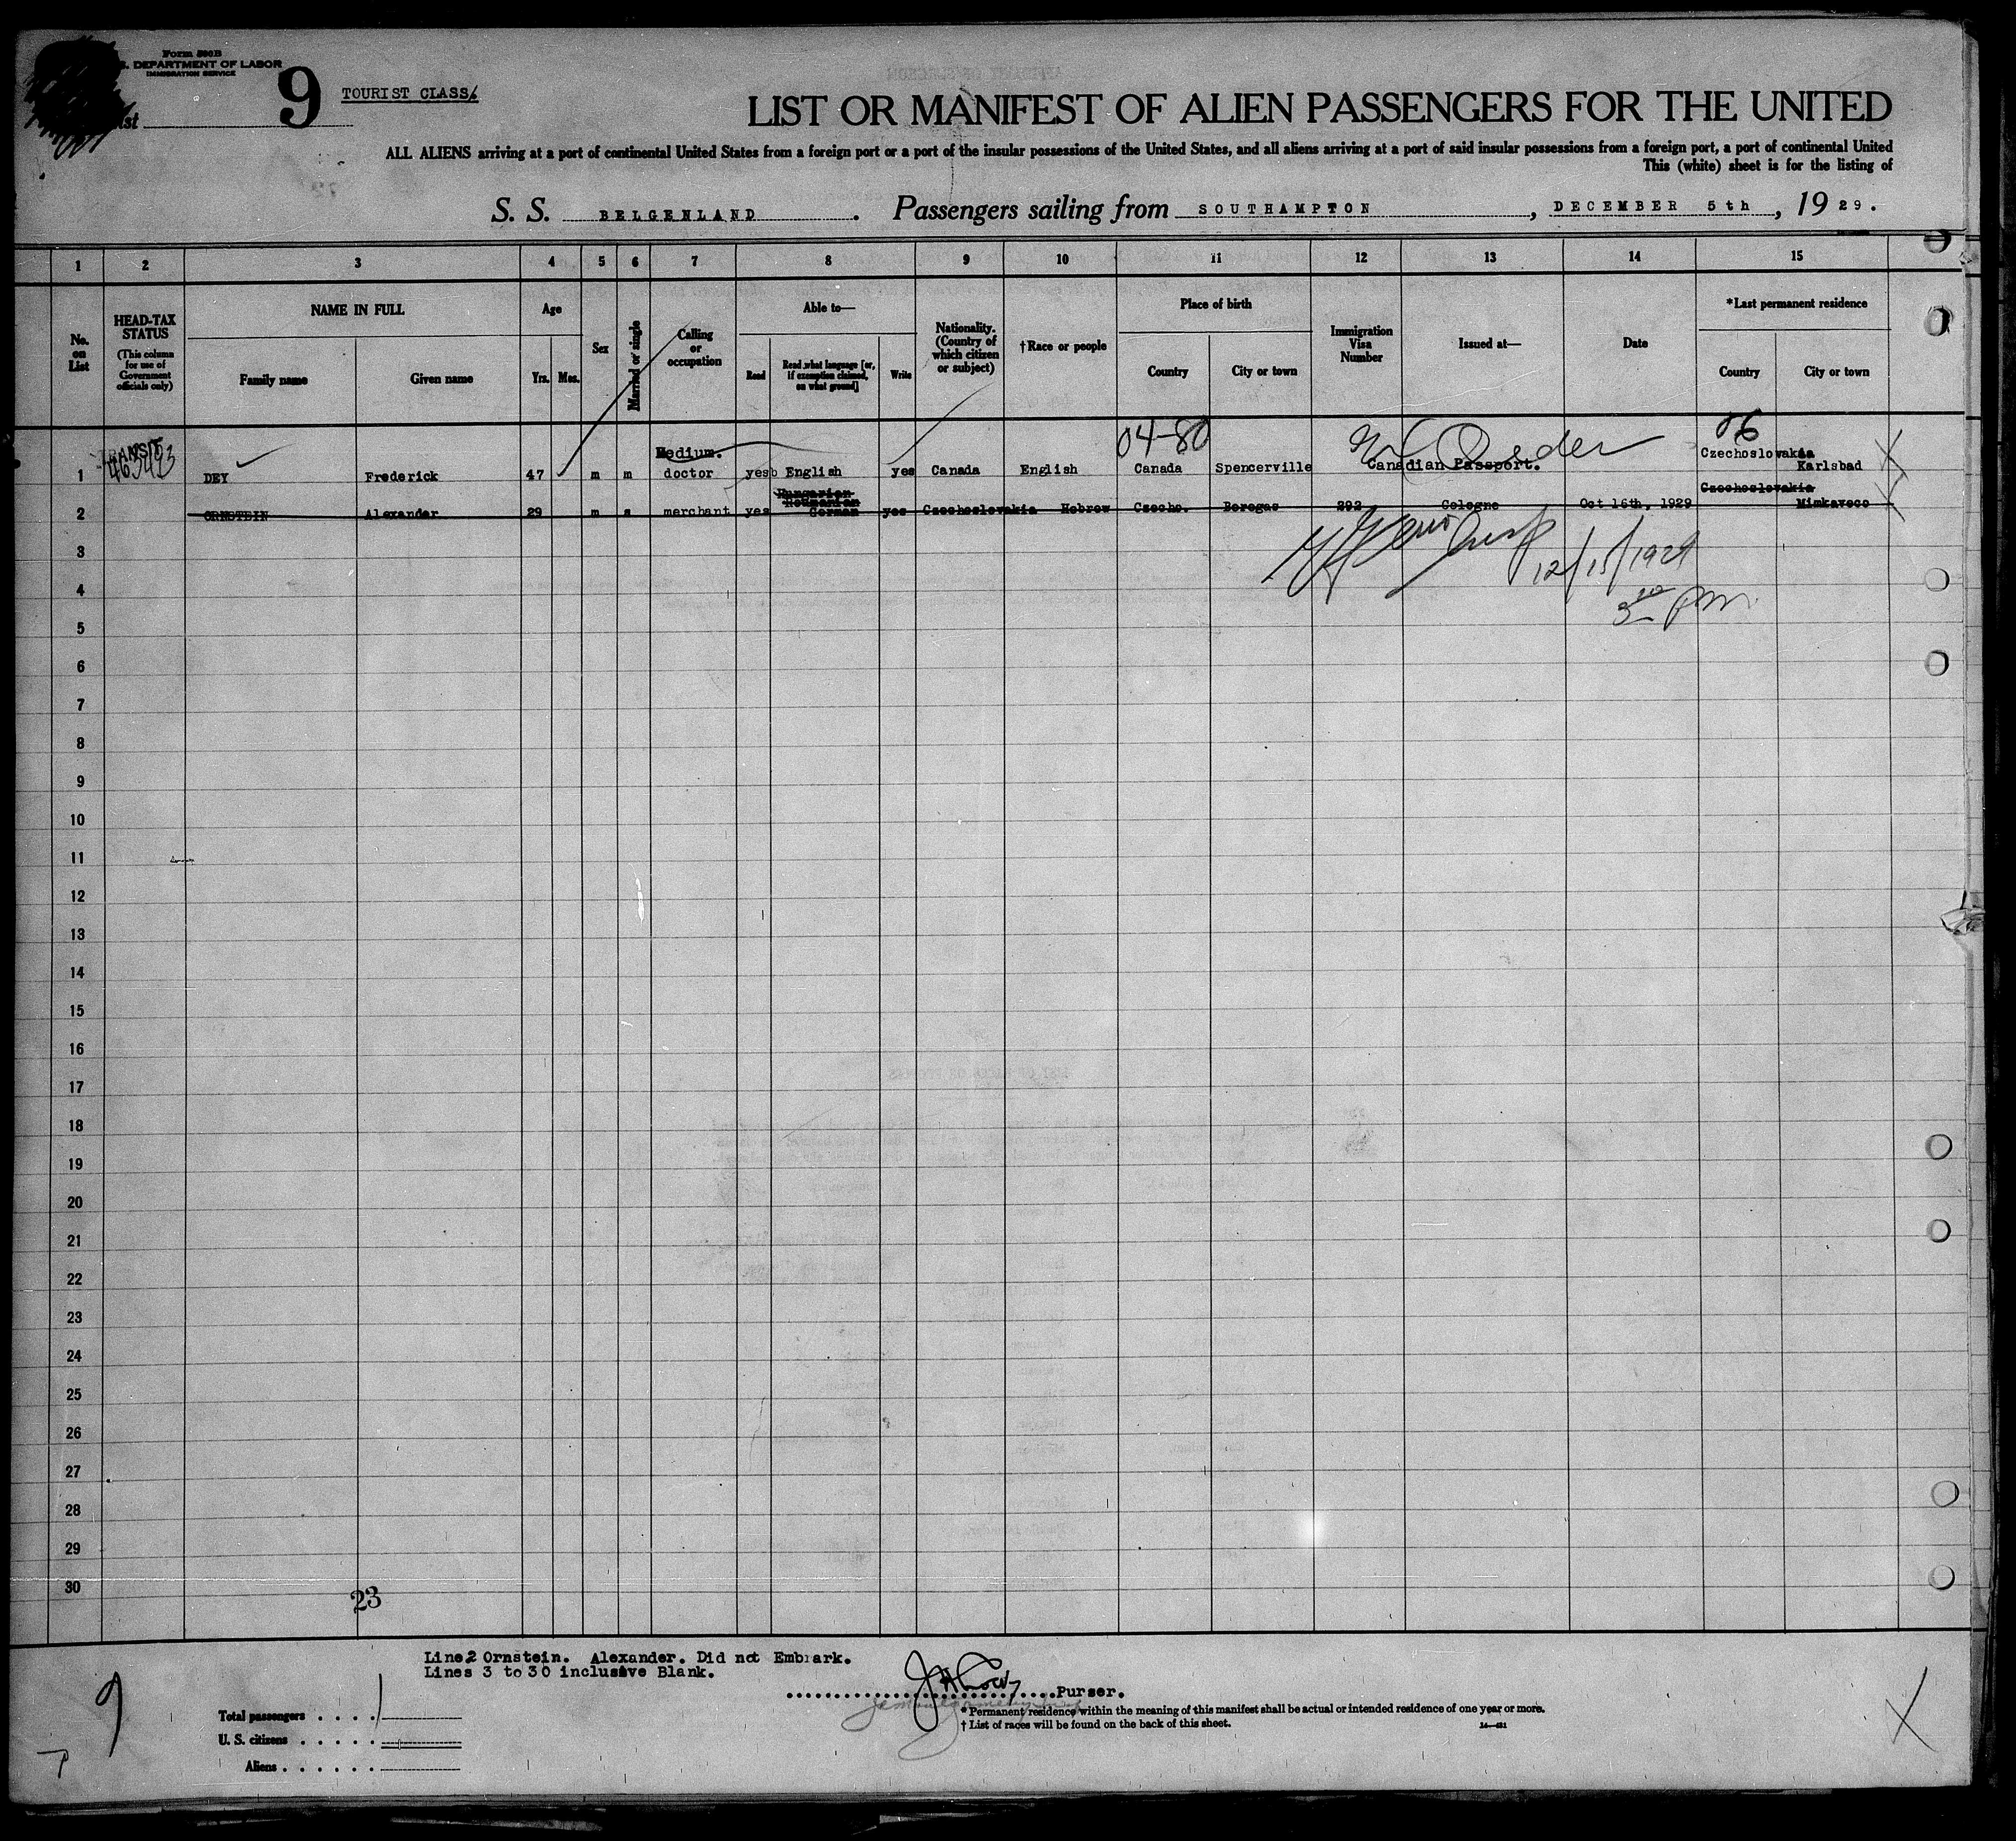 Form 500B
U.S. DEPARTMENT OF LABOR
IMMIGRATION SERVICE
9
TOURIST CLASS.
List
LIST OR MANIFEST OF ALIEN PASSENGERS FOR THE UNITED
ALL ALIENS arriving at a port of continental United States from a foreign port or a port of the insular possessions of the United States, and all aliens arriving at a port of said insular possessions from a foreign port, a port of continental United
This (white) sheet is for the listing of
S. S. BELGENLAND. Passengers sailing from SOUTHAMPTON, DECEMBER 5th, 1929.
1 2 3 4 5 6 7 8 9 10 11 12 13 14 15
No. on List
HEAD-TAX STATUS
(This column for use of Government officials only)
NAME IN FULL
Family name Given name
Age
Yrs. Mos.
Sex
Married or single
Calling or occupation
Able to—
Read Read what language [or, if exemption claimed, on what ground] Write
Nationality. (Country of which citizen or subject)
†Race or people
Place of birth
Country City or town
Immigration Visa Number
Issued at—
Date
*Last permanent residence
Country City or town
04-80 06
TRANSIT Medium. Czechoslovakia
1 463423 DEY Frederick 47 m m doctor yes English yes Canada English Canada Spencerville Canadian Passport. Karlsbad
Hungarian Roumanian Czechoslovakia
2 ORNSTEIN Alexander 29 m s merchant yes German yes Czechoslovakia Hebrew Czecho. Beregas 292 Cologne Oct 16th, 1929 Mimkaveco
3
12/15/1929
4
3 30 PM
5
6
7
8
9
10
11
12
13
14
15
16
17
18
19
20
21
22
23
24
25
26
27
28
29
30
23
Line 2 Ornstein. Alexander. Did not Embark.
Lines 3 to 30 inclusive Blank.
Purser.
Total passengers
U. S. citizens
Aliens
* Permanent residence within the meaning of this manifest shall be actual or intended residence of one year or more.
† List of races will be found on the back of this sheet.
9
X